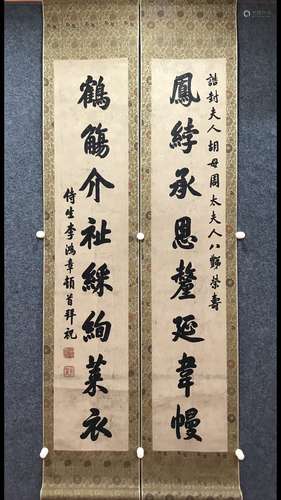 誥封夫人胡母周太夫人八豒榮壽
鳳綍承恩釐延韋幔
鶴觴介祉綵絢萊衣
侍生李鴻章頓首拜祝